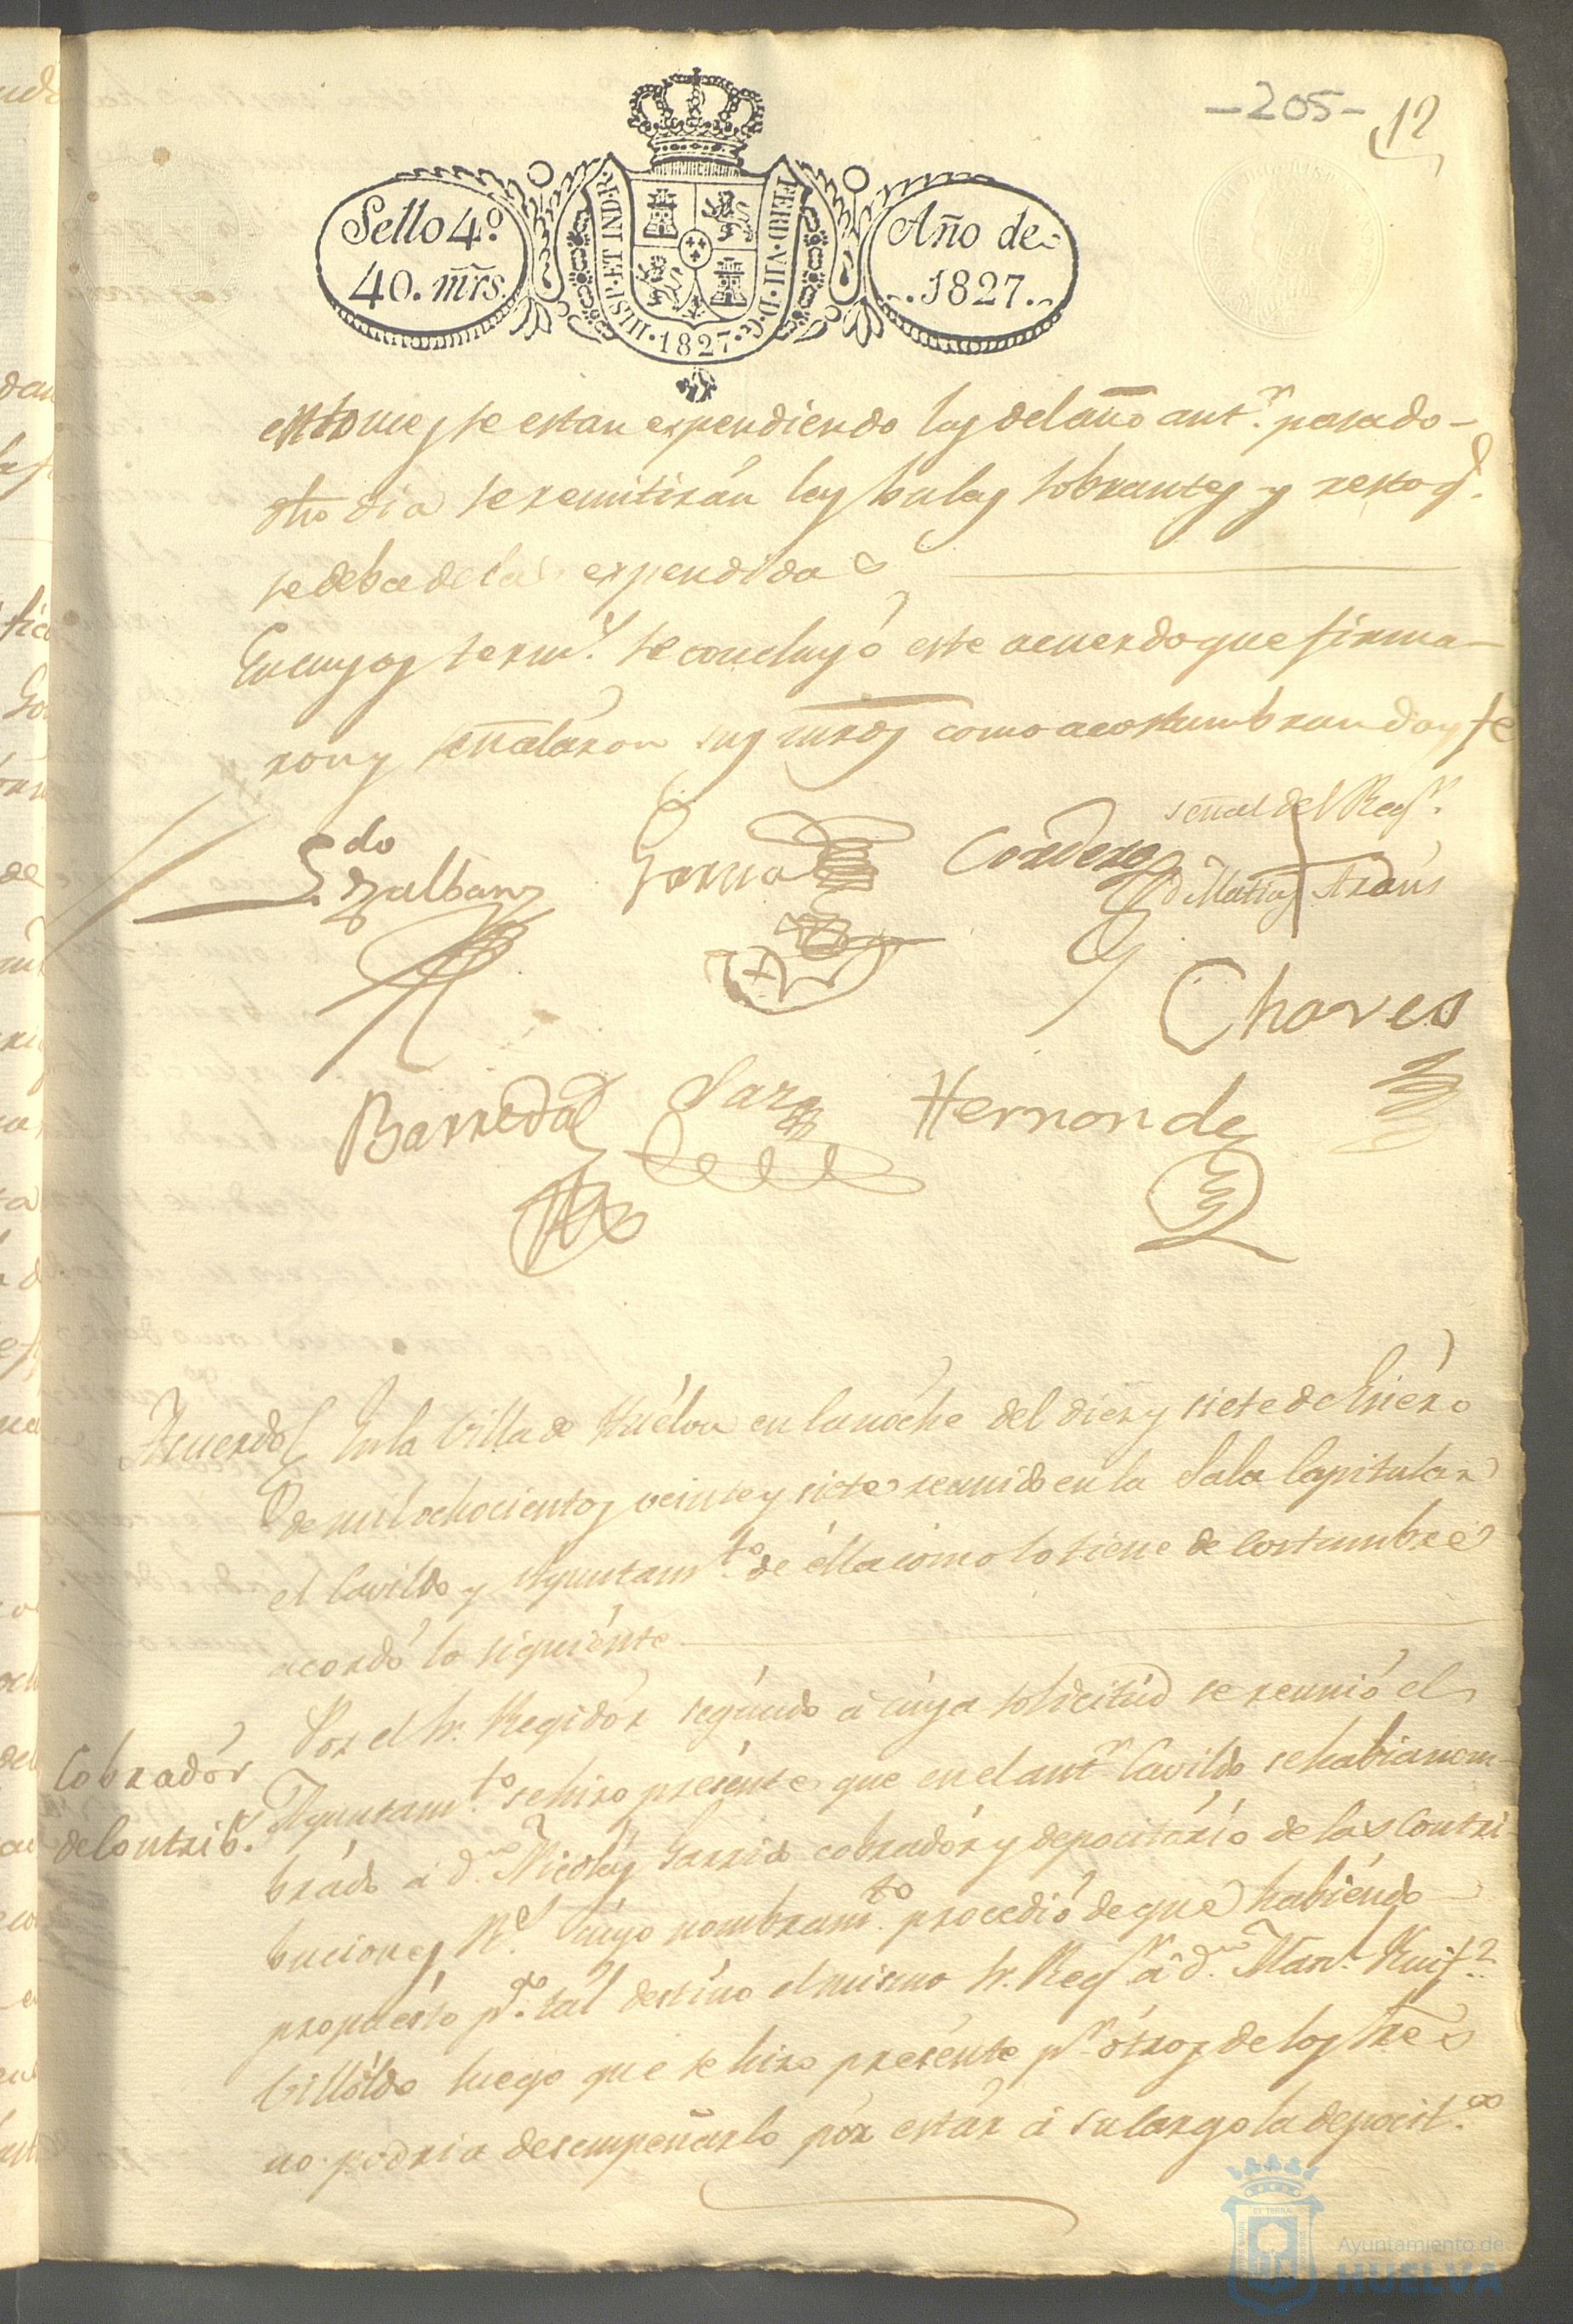 -205- 12
Sello 4º
40. mrs.
HISP. ET IND. R.
FERD. VII. D. G.
1827
Año de
1827.
entonces se estan expendiendo las del año antr. pasado
otro dia se remitirán las bulas sobrantes y resto q.
se deba de las expendidas
En cuyos term.s se concluyó este acuerdo que firma-
ron y señalaron sus mrds como acostumbran doy fe
señal del Regr.
Ldo
Cordero
D Matias
Chaves
Barreda Saez Hernandez
Acuerdo En la Villa de Huélva en la nóche del diez y siete de Enéro
de mil ochocientos veinte y siete reunido en la Sala Capitular
el Cavildo y Ayuntamto. de élla como lo tiene de costumbre
acordó lo siguiénte
Cobradór
de Contribs.
Por el Sr. Regidór segúndo á cúya solicitúd se reunió el
Ayuntamto. se hizo presénte que en el antr. Cavildo se habia nom-
brádo á dn. Nicolas Garrido cobradór y depocitário de las Contri
buciones Rs. cúyo nombramto. procedió de que habiéndo
propuésto pa. tal destino el mismo Sr. Regr. á dn. Manl. Ruiz
Villóldo luego que se hizo presénte pr. ótros de los Sres
no podria desempeñarlo pór estár á su cargo la deposit.
Ayuntamiento de
HUELVA